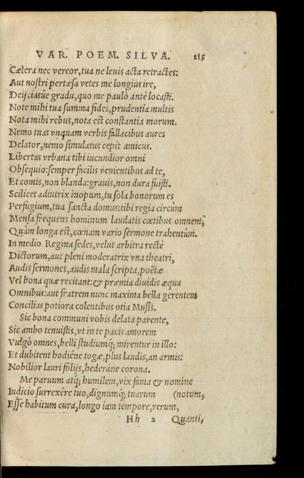 VAR. POEM. SILVA. 215
Cætera nec vereor, tua ne leuis acta retractes:
Aut nostri pertæsa vetes me longius ire,
Deijciasúe gradu, quo me paulò antè locasti.
Note mihi tua summa fides, prudentia multis
Nota mihi rebus, nota est constantia morum.
Nemo tuas vnquam verbis fallacibus aures
Delator, nemo simulatus cepit amicus.
Libertas vrbana tibi iucundior omni
Obsequio: semper facilis venientibus ad te,
Et comis, non blanda: grauis, non dura fuisti.
Scilicet adiutrix inopum, tu sola bonorum es
Perfugium, tua sancta domus: tibi regia circum
Mensa frequens hominum laudatis cœtibus omnem,
Quàm longa est, cœnam vario sermone trahentum.
In medio Regina sedes, velut arbitra rectè
Dictorum, aut pleni moderatrix vna theatri,
Audis sermones, audis mala scripta, poëtæ
Vel bona quæ recitant: & præmia diuidis æqua
Omnibus: aut fratrem nunc maxima bella gerentem
Concilias potiora colentibus otia Musis.
Sic bona communi vobis delata parente,
Sic ambo tenuistis, vt in te pacis amorem
Vulgò omnes, belli studiumq́; mirentur in illo:
Et dubitent hodiéne togæ, plus laudis, an armis:
Nobilior lauri folijs, hederæne corona.
Me paruum atq́; humilem, vix fama & nomine
Iudicio surrexére tuo, dignumq́; tuarum (notum,
Esse habitum cura, longo iam tempore, rerum,
Hh 2 Quanti,